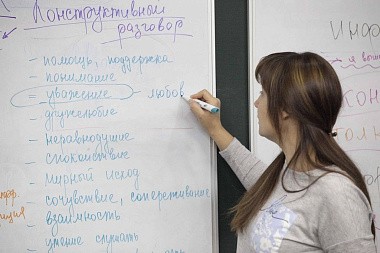 Конструктивный
разговор
- помощь, поддержка
- понимание
- уважение - любов
- дружелюбие
- неравнодушие
- спокойствие
- мирный исход
- сочувствие, сопереживание
- взаимность
- умение слушать
Инфо